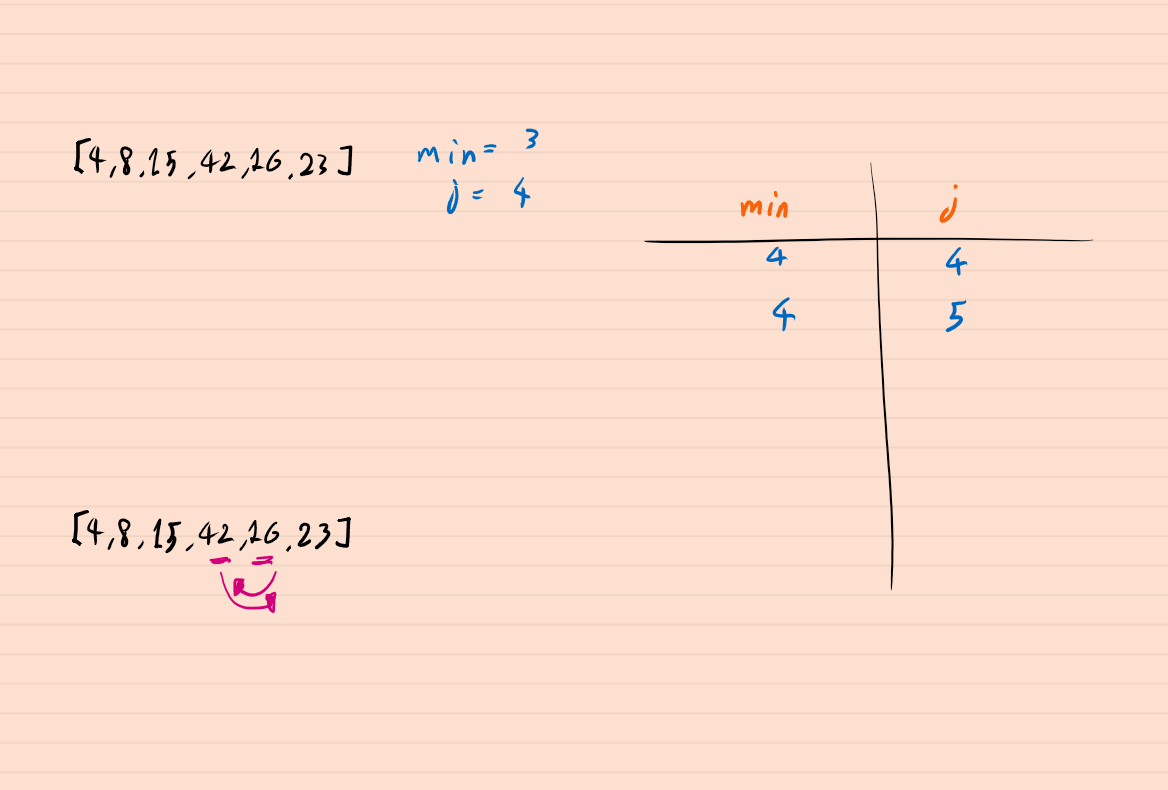 [4,8,15,42,16,23]
min= 3
j= 4
min j
4 4
4 5
[4,8,15,42,16,23]